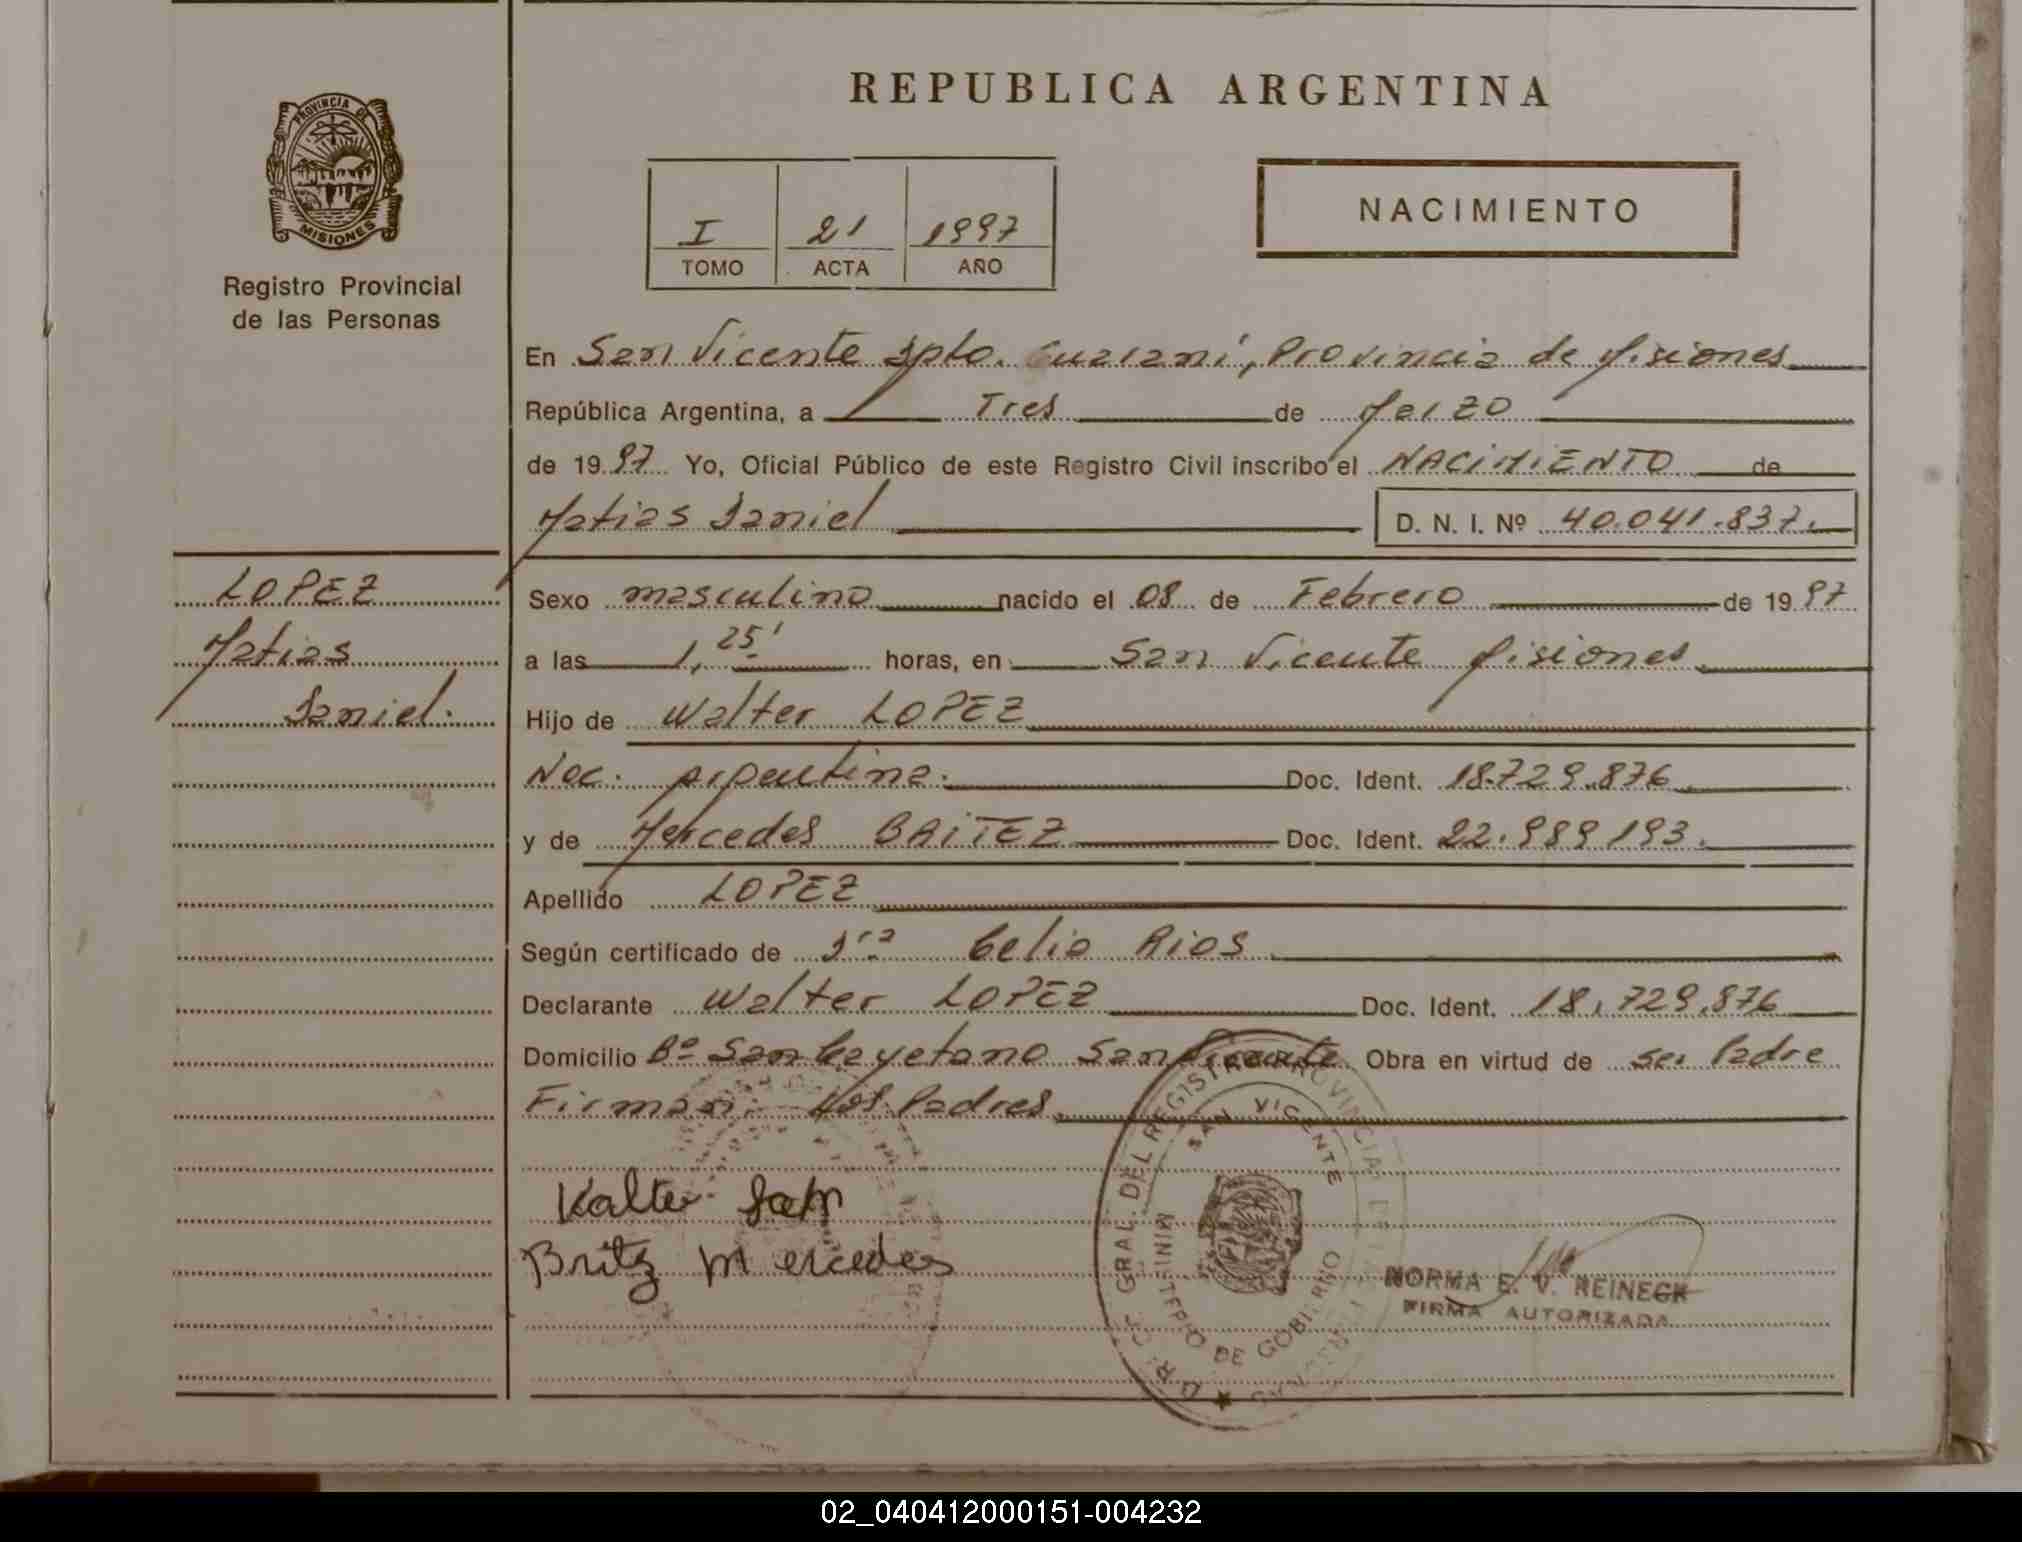 REPUBLICA ARGENTINA
PROVINCIA DE
MISIONES
Registro Provincial
de las Personas
I 21 1997
TOMO ACTA AÑO
NACIMIENTO
En San Vicente Dpto. Guaraní, Provincia de Misiones
República Argentina, a Tres de Marzo
de 1997 Yo, Oficial Público de este Registro Civil inscribo el NACIMIENTO de
Matias Daniel D. N. I. Nº 40.041.837.
LOPEZ
Matias
Daniel.
Sexo masculino nacido el 08 de Febrero de 1997
a las 1,25' horas, en San Vicente Misiones
Hijo de Walter LOPEZ
Nac. argentina. Doc. Ident. 18.729.876
y de Mercedes BRITEZ Doc. Ident. 22.989.193.
Apellido LOPEZ
Según certificado de Dra Celia Rios
Declarante Walter LOPEZ Doc. Ident. 18.729.876
Domicilio Bº San Cayetano San Vicente Obra en virtud de ser Padre
Firman: los Padres
Walter
Britz Mercedes
GRAL. DEL REGISTRO PROVINCIAL
SAN VICENTE
MINISTERIO DE GOBIERNO
NORMA E. V. REINECK
FIRMA AUTORIZADA
02_040412000151-004232